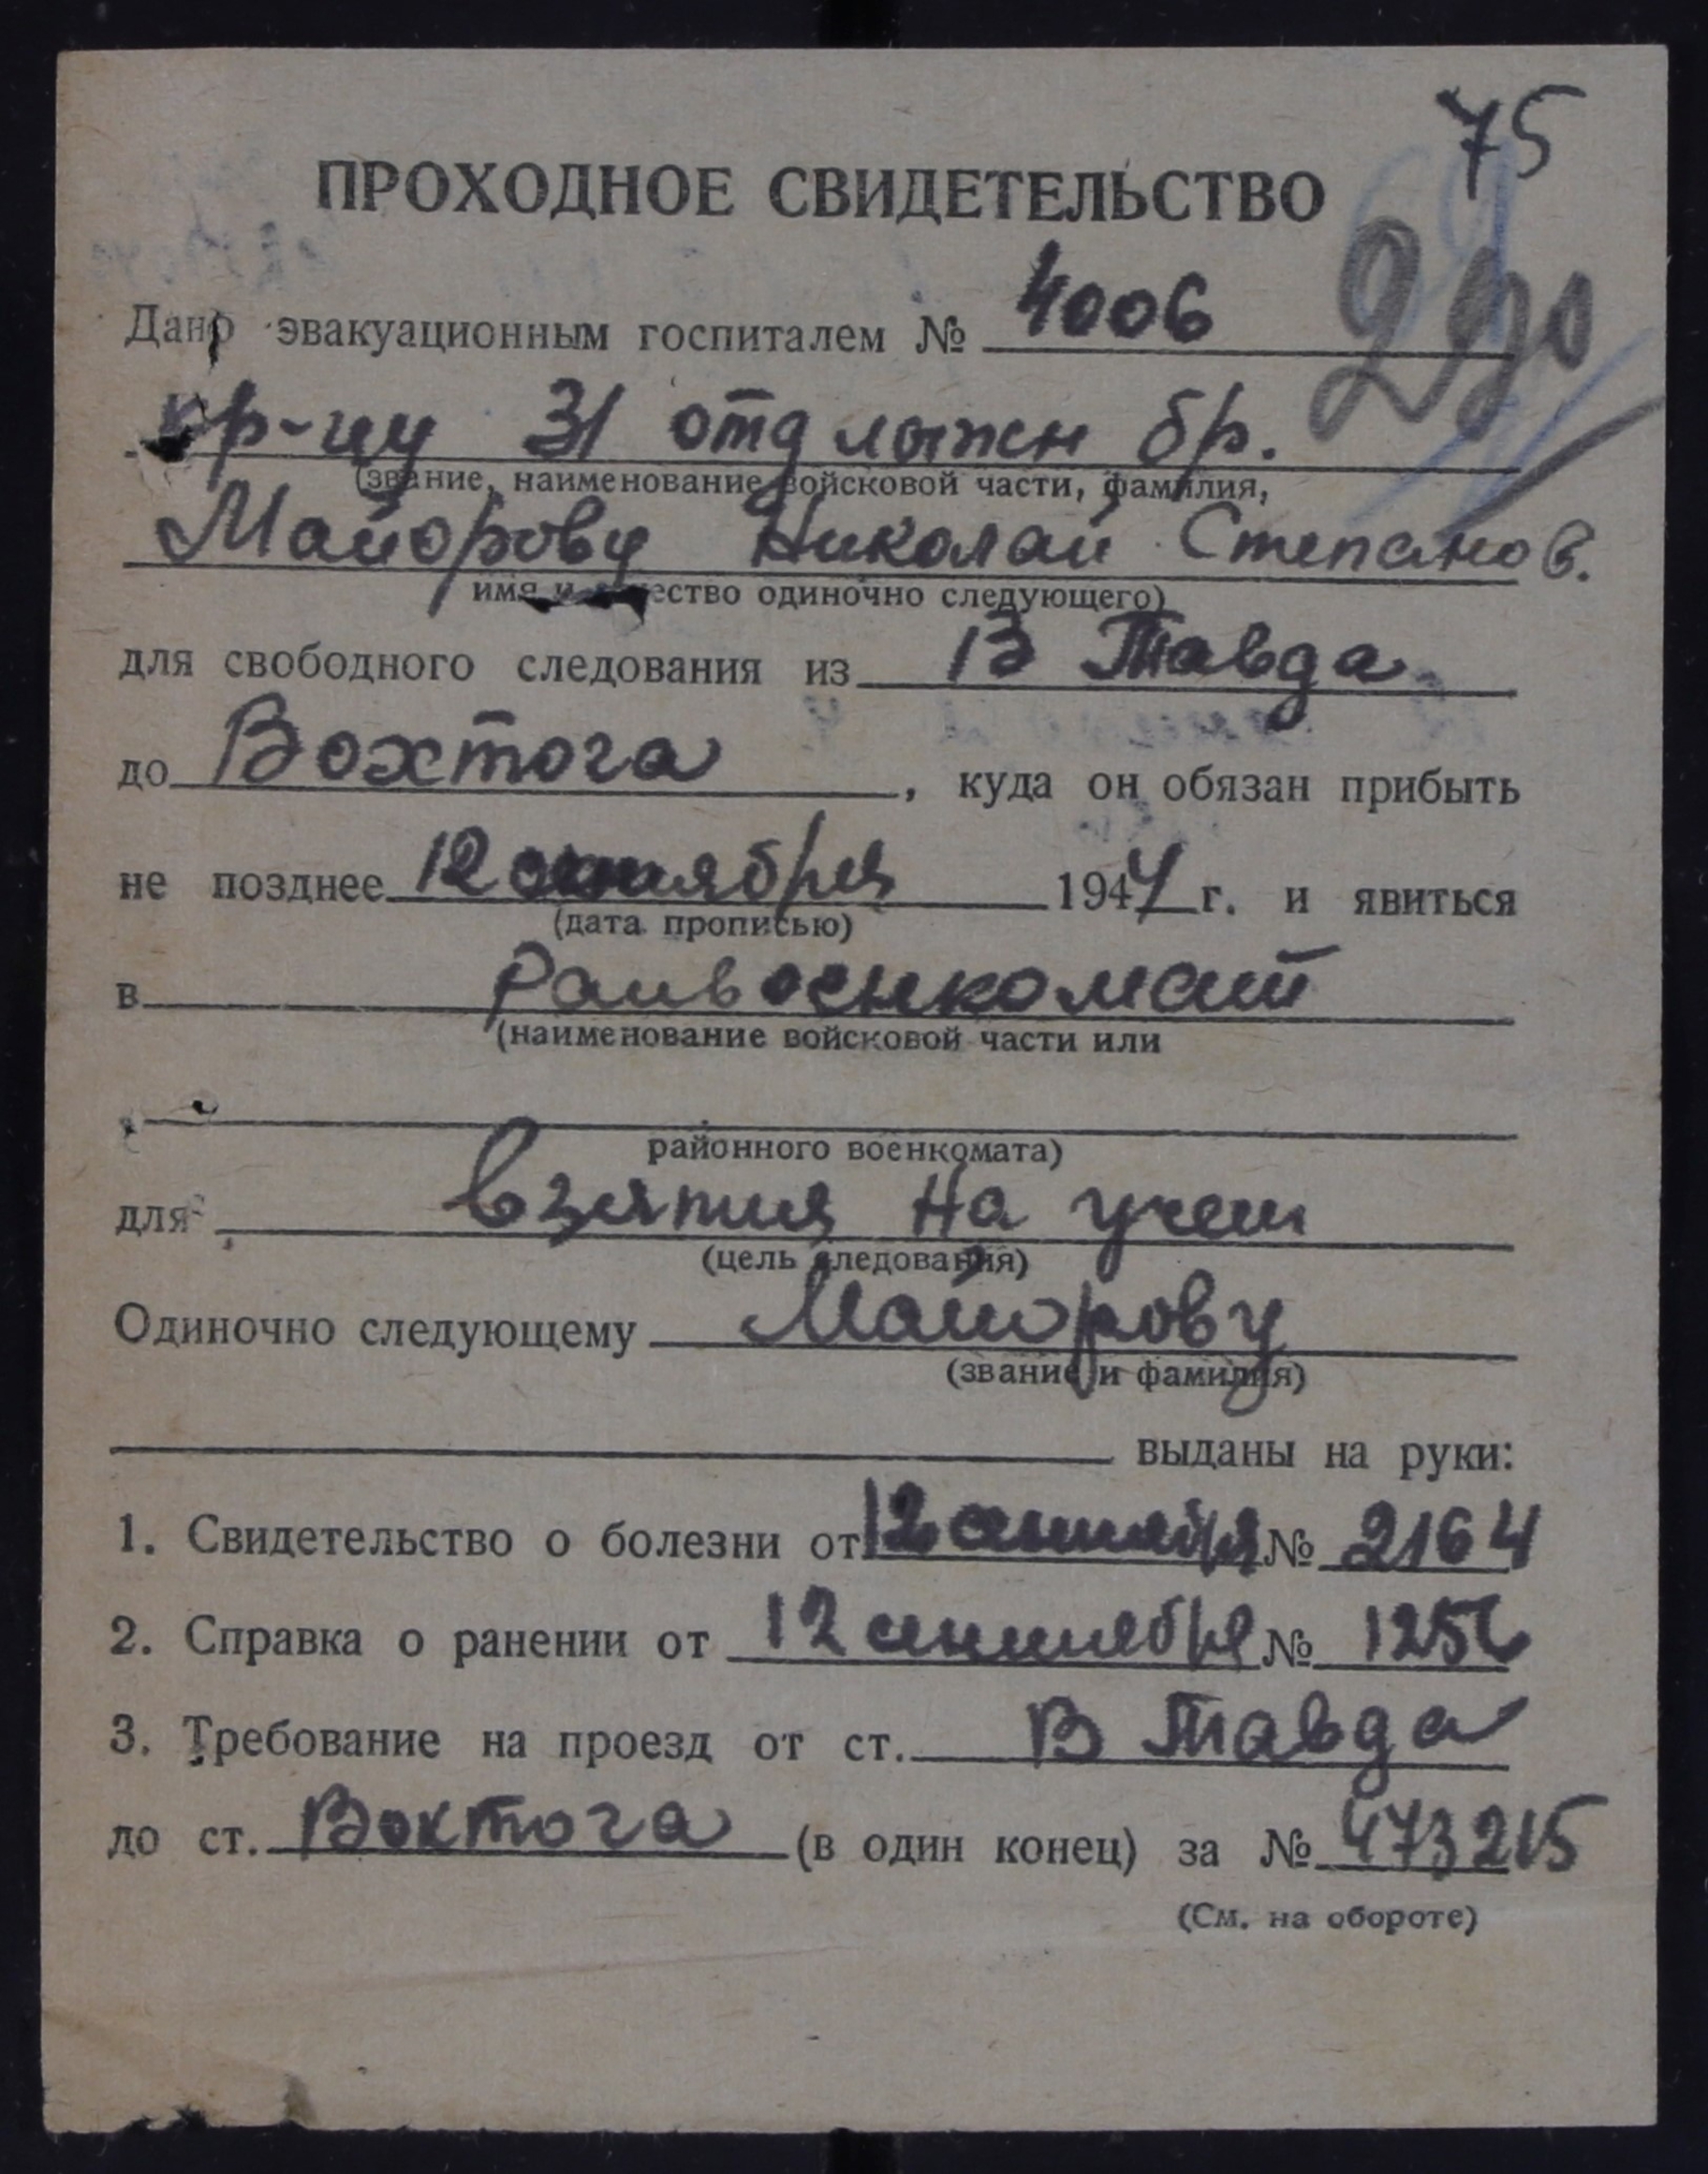 75
ПРОХОДНОЕ СВИДЕТЕЛЬСТВО
69
Дано эвакуационным госпиталем № 4006
кр-цу 31 отд лыжн бр.
(звание, наименование войсковой части, фамилия,
Майорову Николай Степанов.
имя и отчество одиночно следующего)
для свободного следования из В Тавда
до Вохтога, куда он обязан прибыть
не позднее 12 октября 1944 г. и явиться
(дата прописью)
в Райвоенкомат
(наименование войсковой части или
районного военкомата)
для взятия на учет
(цель следования)
Одиночно следующему Майорову
(звание и фамилия)
выданы на руки:
1. Свидетельство о болезни от 12 сентября № 2164
2. Справка о ранении от 12 сентября № 1256
3. Требование на проезд от ст. В Тавда
до ст. Воктога (в один конец) за № 473215
(См. на обороте)